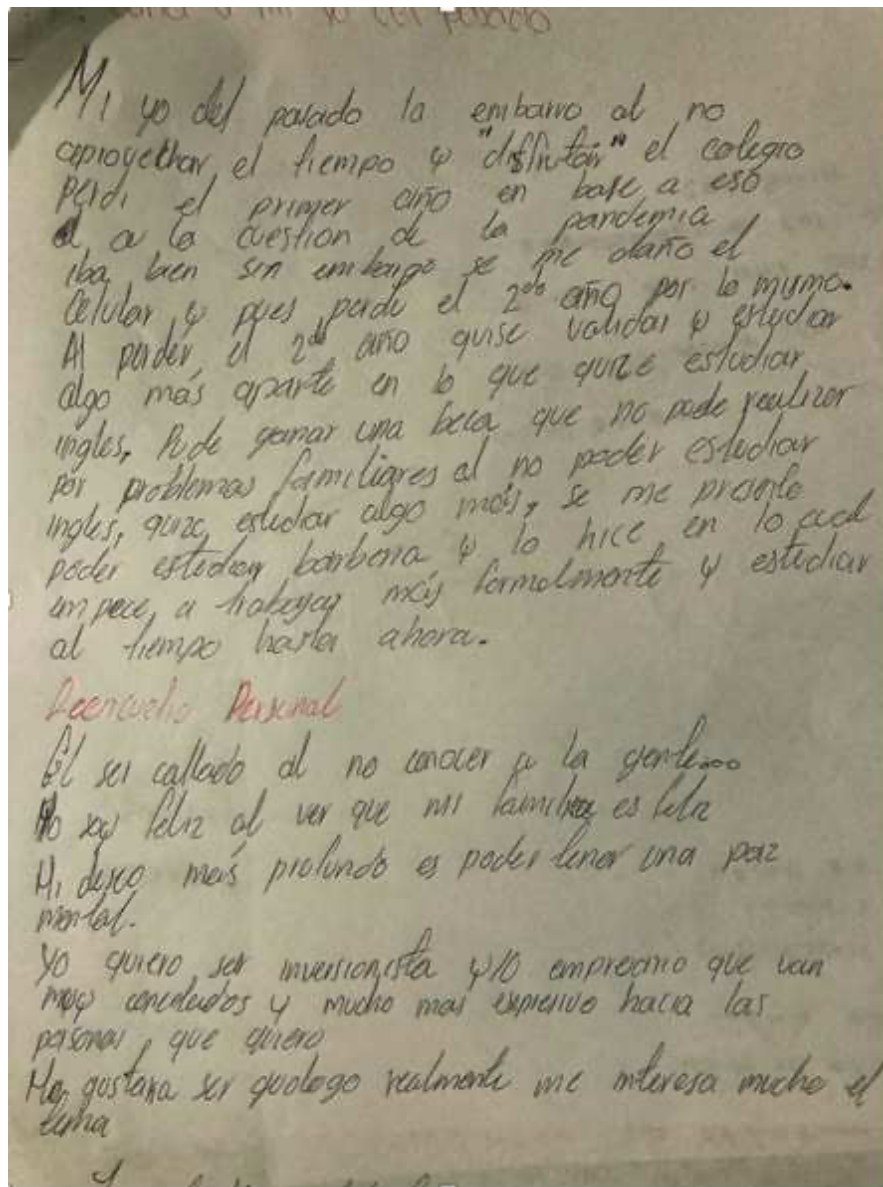 a mi yo del pasado
Mi yo del pasado la embarro al no
aprovechar el tiempo y "disfrutar" el colegio
perdi el primer año en base a eso
a la cuestion de la pandemia
iba bien sin embargo se me daño el
celular y pues perdi el 2do año por lo mismo.
Al perder el 2do año quise validar y estudiar
algo más aparte en lo que quize estudiar
ingles, Pude ganar una beca que no pude realizar
por problemas familiares al no poder estudiar
ingles, quize estudiar algo más, se me presento
poder estudiar barberia y lo hice en lo cual
empece a trabajar más formalmente y estudiar
al tiempo hasta ahora.
Personal
El ser callado al no conocer a la gente...
Yo soy feliz al ver que mi familia es feliz
Mi deseo más profundo es poder tener una paz
mental.
Yo quiero ser inversionista y/o que van
muy y mucho mas expresivo hacia las
personas que quiero
Me gustaria ser realmente me interesa mucho el
tema